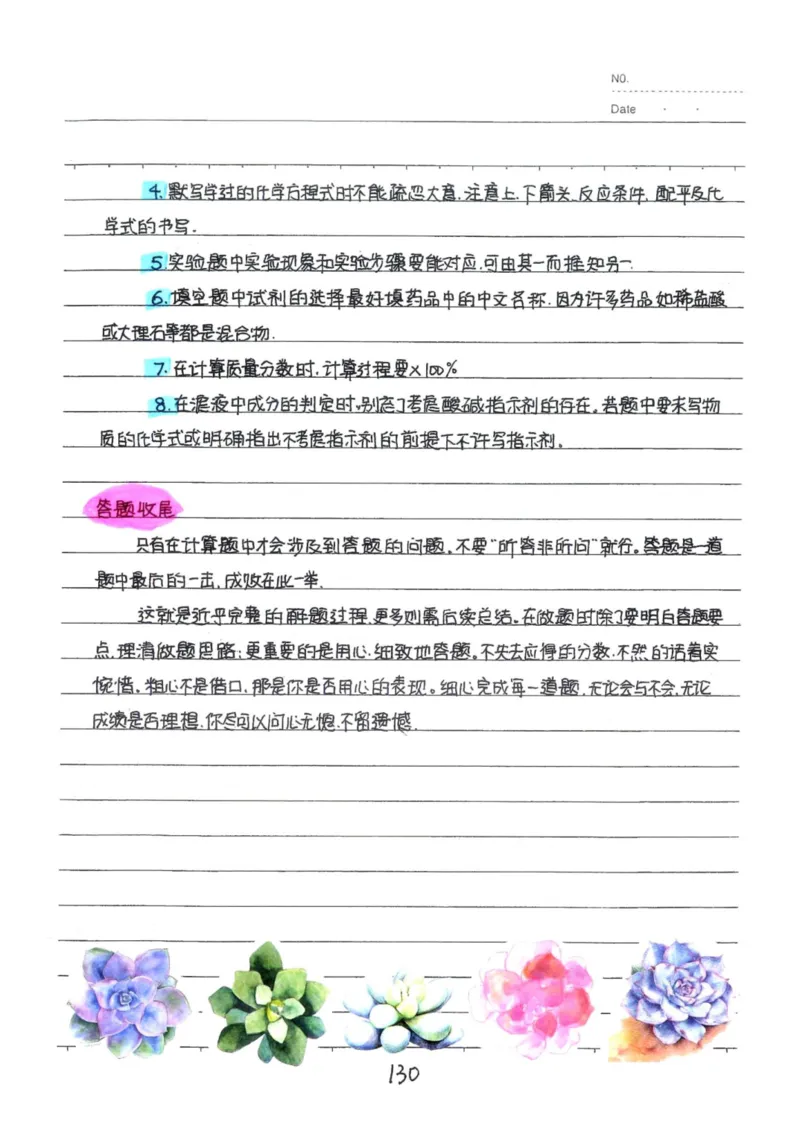 NO.
Date
4.默写学过的化学方程式时不能疏忽大意.注意上.下箭头.反应条件.配平及化
学式的书写.
5.实验题中实验现象和实验步骤要能对应.可由其一而推知另一.
6.填空题中试剂的选择最好填药品中的中文名称.因为许多药品如稀盐酸
或大理石等都是混合物.
7.在计算质量分数时.计算过程要×100%
8.在滤液中成分的判定时,别忘了考虑酸碱指示剂的存在。若题中要求写物
质的化学式或明确指出不考虑指示剂的前提下不许写指示剂。
答题收尾
只有在计算题中才会涉及到答题的问题。不要"所答非所问"就行。答题是一道
题中最后的一击.成败在此一举.
这就是近乎完整的解题过程.更多则需后续总结。在做题时除了要明白答题要
点.理清做题思路;更重要的是用心.细致地答题。不失去应得的分数.不然的话着实
惋惜。粗心不是借口.那是你是否用心的表现。细心完成每一道题.无论会与不会.无论
成绩是否理想.你尽可以问心无愧.不留遗憾.
130